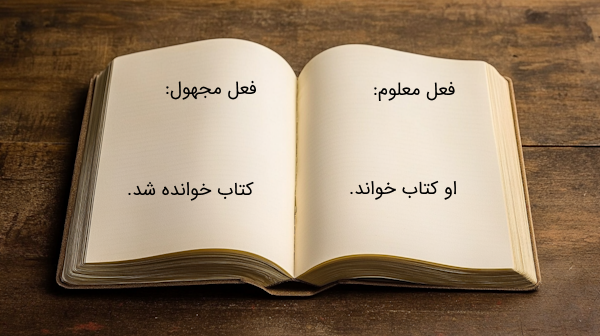 فعل معلوم:
او کتاب خواند.
فعل مجهول:
کتاب خوانده شد.